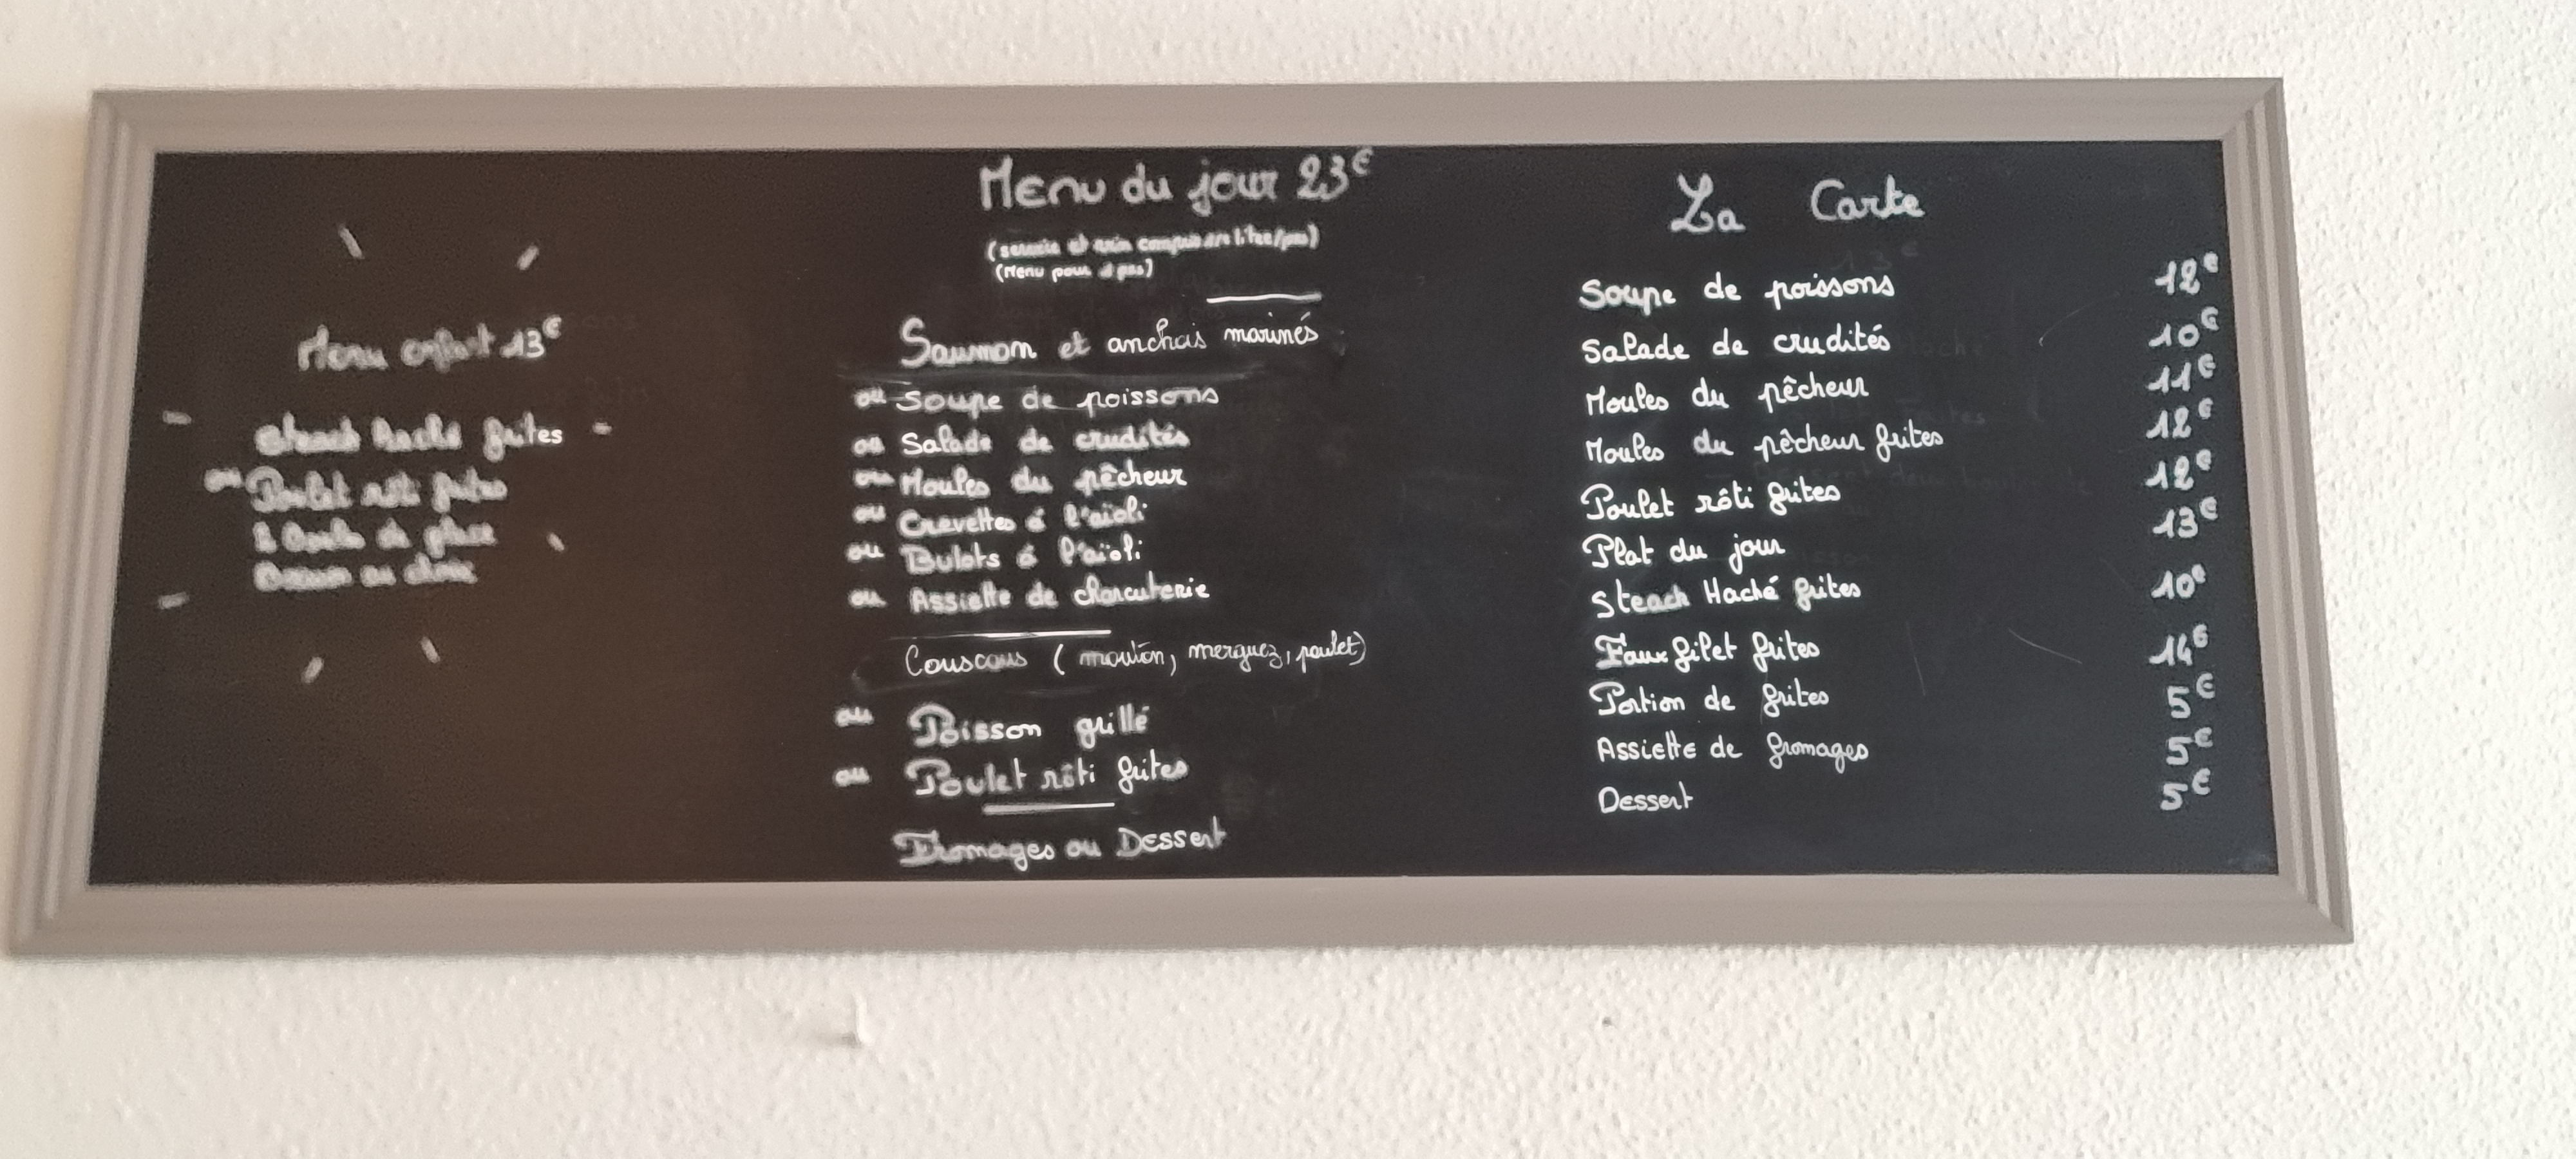 Menu enfant 13€
Steack haché frites
ou Poulet rôti frites
2 Boules de glace
Boisson au choix
Menu du jour 23€
(service et vin compris
(Menu pour 1 pers)
Saumon et anchois marinés
ou Soupe de poissons
ou Salade de crudités
ou Moules du pêcheur
ou Crevettes à l'aïoli
ou Bulots à l'aïoli
ou Assiette de charcuterie
Couscous (mouton, merguez, poulet)
ou Poisson grillé
ou Poulet rôti frites
Fromages ou Dessert
La Carte
Soupe de poissons 12€
Salade de crudités 10€
Moules du pêcheur 11€
Moules du pêcheur frites 12€
Poulet rôti frites 12€
Plat du jour 13€
Steack Haché frites 10€
Faux filet frites 14€
Portion de frites 5€
Assiette de fromages 5€
Dessert 5€